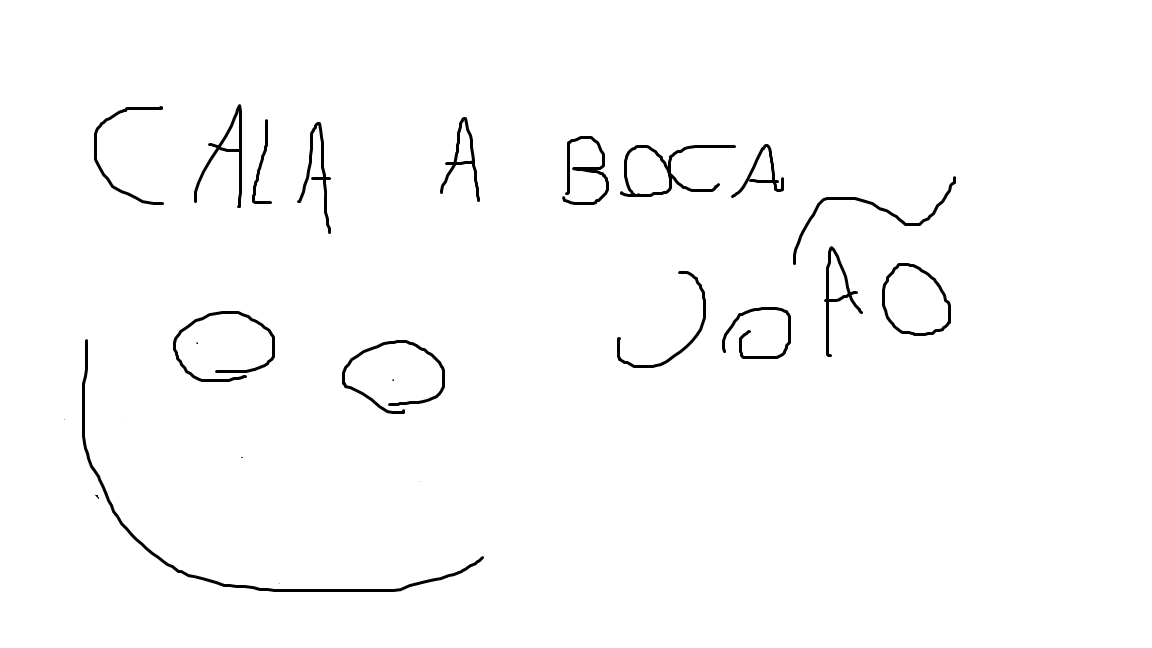 CALA A BOCA
JOÃO